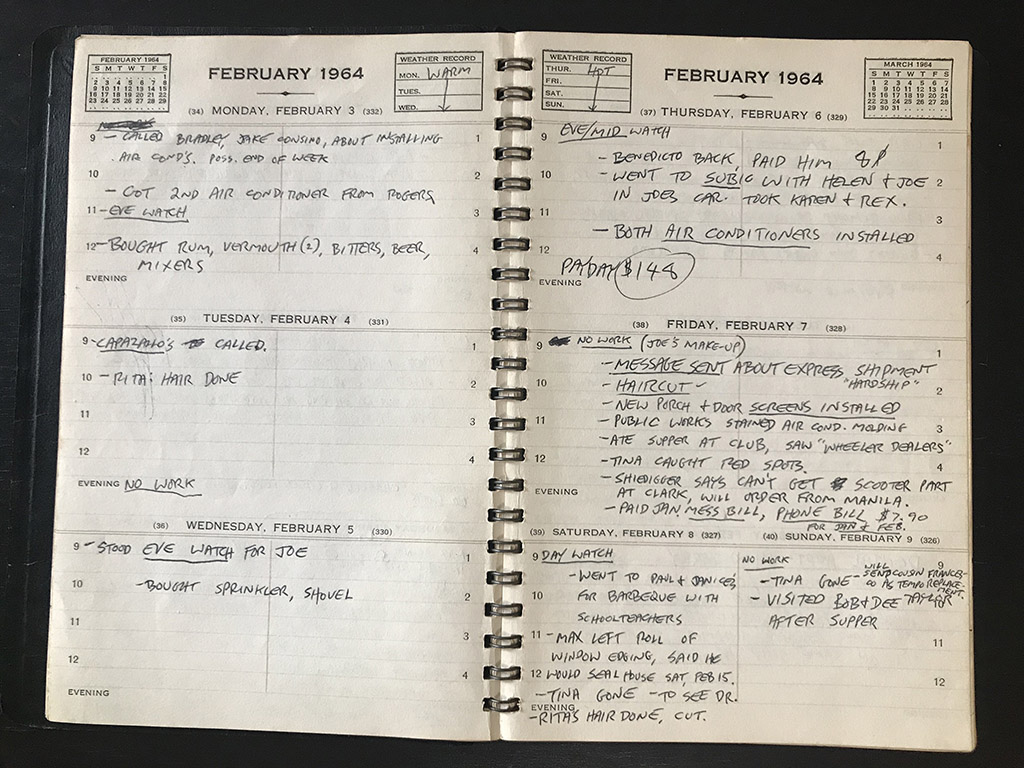 FEBRUARY 1964
S M T W T F S
1
2 3 4 5 6 7 8
9 10 11 12 13 14 15
16 17 18 19 20 21 22
23 24 25 26 27 28 29
FEBRUARY 1964
WEATHER RECORD
MON. WARM
TUES.
WED.
(34) MONDAY, FEBRUARY 3 (332)
9 - CALLED BRADLEY, JAKE CONSINO, ABOUT INSTALLING 1
AIR COND'S. POSS. END OF WEEK
10 2
- GOT 2ND AIR CONDITIONER FROM ROGERS
11 - EVE WATCH 3
12 - BOUGHT RUM, VERMOUTH (2), BITTERS, BEER, 4
MIXERS
EVENING
(35) TUESDAY, FEBRUARY 4 (331)
9 - CALLED. 1
10 - RITA: HAIR DONE 2
11 3
12 4
EVENING NO WORK
(36) WEDNESDAY, FEBRUARY 5 (330)
9 - STOOD EVE WATCH FOR JOE 1
10 - BOUGHT SPRINKLER, SHOVEL 2
11 3
12 4
EVENING
WEATHER RECORD
THUR. HOT
FRI.
SAT.
SUN.
FEBRUARY 1964
MARCH 1964
S M T W T F S
1 2 3 4 5 6 7
8 9 10 11 12 13 14
15 16 17 18 19 20 21
22 23 24 25 26 27 28
29 30 31
(37) THURSDAY, FEBRUARY 6 (329)
9 EVE/MID WATCH 1
- BENEDICTO BACK, PAID HIM 8₱
10 - WENT TO SUBIC WITH HELEN & JOE 2
IN JOE'S CAR. TOOK KAREN & REX.
11 3
- BOTH AIR CONDITIONERS INSTALLED
12 4
PAYDAY $148
EVENING
(38) FRIDAY, FEBRUARY 7 (328)
9 NO WORK (JOE'S MAKE-UP) 1
- MESSAGE SENT ABOUT EXPRESS SHIPMENT
"HARDSHIP"
10 - HAIRCUT - 2
- NEW PORCH & DOOR SCREENS INSTALLED
11 - PUBLIC WORKS STAINED AIR COND. MOLDING 3
- ATE SUPPER AT CLUB, SAW "WHEELER DEALERS"
12 - TINA CAUGHT RED SPOTS. 4
- SHIEDIGGER SAYS CAN'T GET SCOOTER PART
EVENING AT CLARK, WILL ORDER FROM MANILA.
- PAID JAN. MESS BILL, PHONE BILL $7.90
FOR JAN & FEB.
(39) SATURDAY, FEBRUARY 8 (327)
9 DAY WATCH
- WENT TO PAUL & JANICE'S
10 FOR BARBEQUE WITH
SCHOOLTEACHERS
11 - MAX LEFT ROLL OF
WINDOW EDGING, SAID HE
12 WOULD SEAL HOUSE SAT, FEB 15.
- TINA GONE - TO SEE DR.
EVENING
- RITA'S HAIR DONE, CUT.
(40) SUNDAY, FEBRUARY 9 (326)
NO WORK 9
- TINA GONE - WILL SEND COUSIN FRANCES-
CO AS TEMPO REPLACE-
MENT.
- VISITED BOB & DEE TAYLOR 10
AFTER SUPPER
11
12